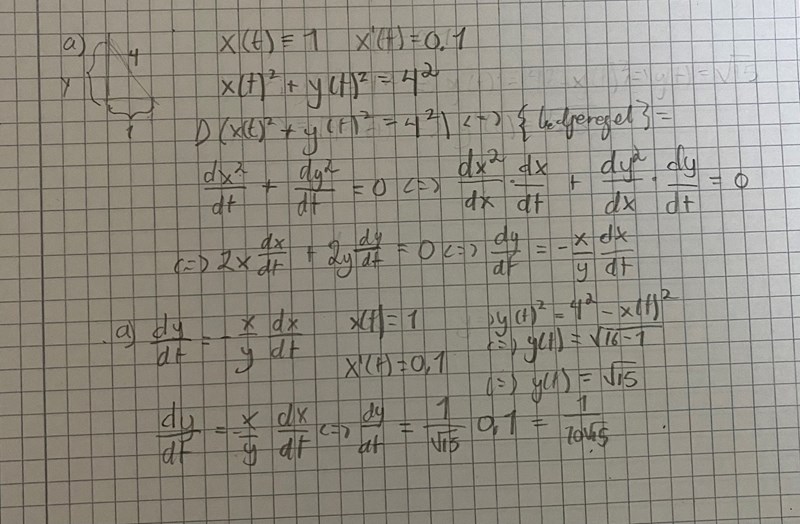 a) 4 x(t) = 1 x'(t) = 0,1
y x(t)² + y(t)² = 4²
1 D(x(t)² + y(t)² = 4²) <=> { } =
dx²/dt + dy²/dt = 0 <=> dx²/dx · dx/dt + dy²/dx · dy/dt = 0
<=> 2x dx/dt + 2y dy/dt = 0 <=> dy/dt = - x/y dx/dt
a) dy/dt = - x/y dx/dt x(t) = 1 y(t)² = 4² - x(t)²
x'(t) = 0,1 <=> y(t) = √16-1
<=> y(t) = √15
dy/dt = - x/y dx/dt <=> dy/dt = 1/√15 0,1 = 1/10√15